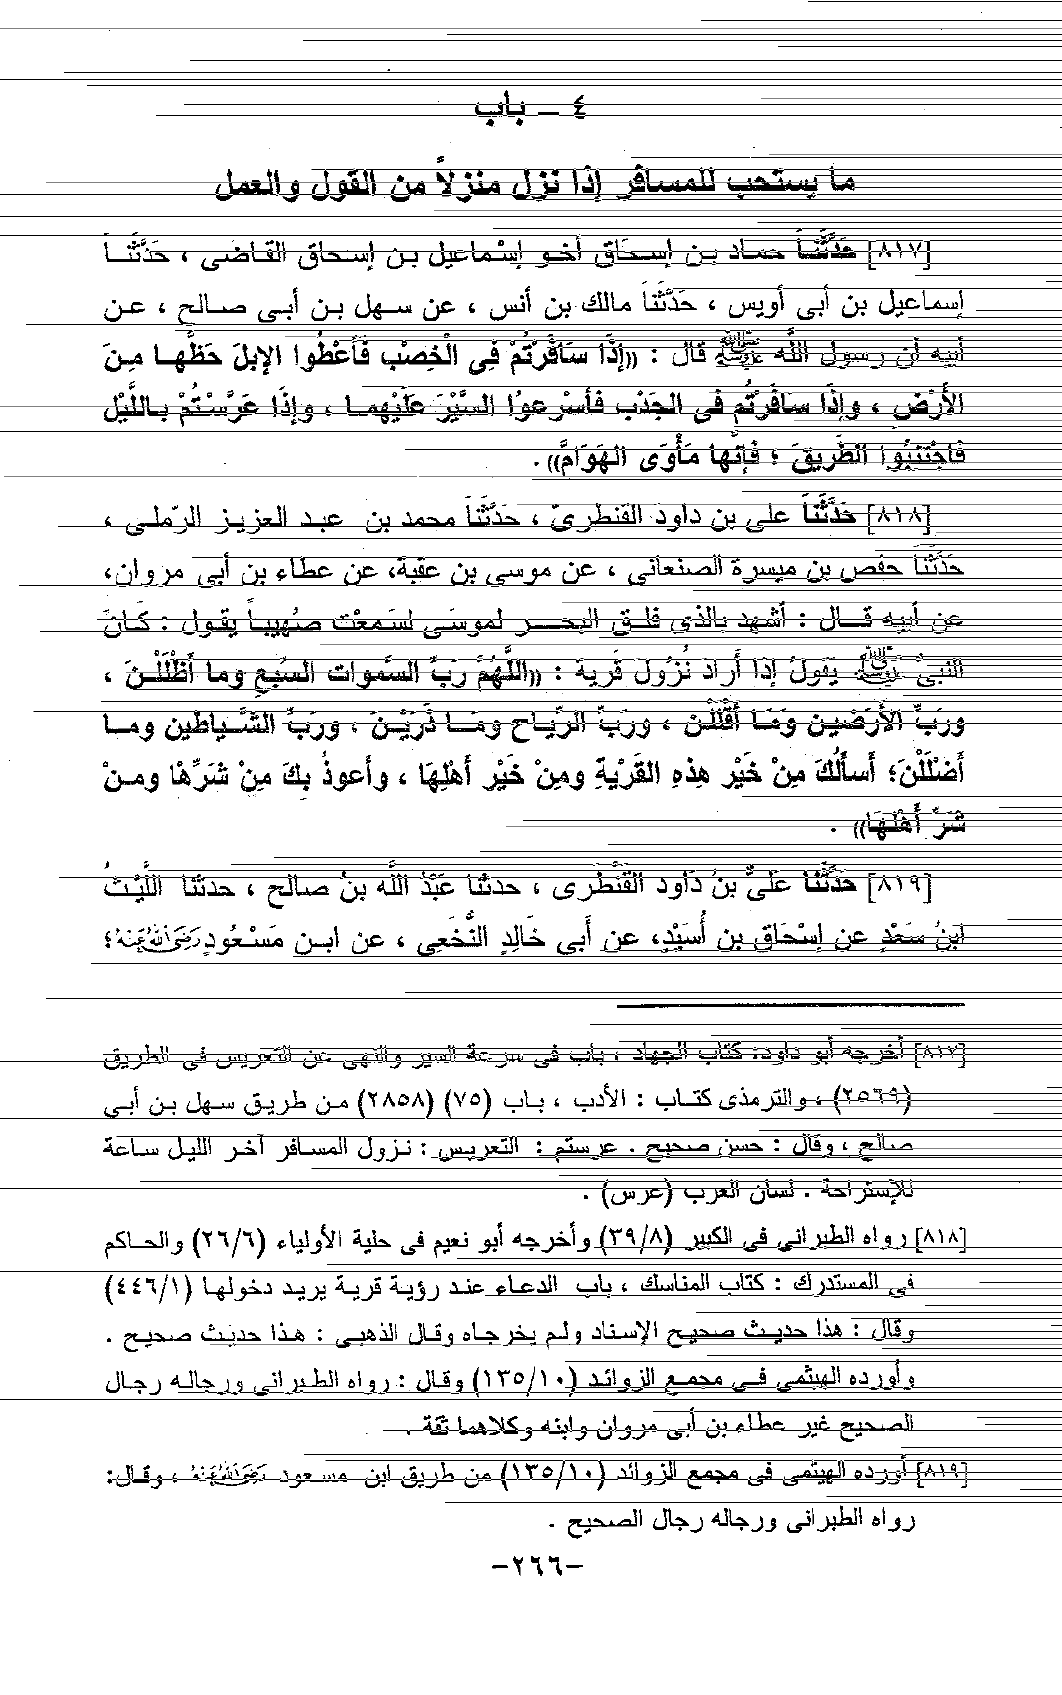 ٤ – باب
ما يستحب للمسافر إذا نزل منزلاً من القول والعمل
[٨١٧] حَدَّثَنَا حماد بن إسحاق أخو إسماعيل بن إسحاق القاضى ، حَدَّثَنا
إسماعيل بن أبى أويس ، حَدَّثَنَا مالك بن أنس ، عن سهل بن أبى صالح ، عن
أبيه أن رسول الله ﷺ قال : ((إذَا سَافَرْتُمْ فِى الْخِصْب فَأَعْطُوا الإبلَ حَظَّها مِنَ
الأَرْضِ ، وإذَا سافَرتُم فى الجَدْب فأسْرعوُا السَّيْرَ عَلَيْهما ، وإذَا عَرَّسْتُمْ باللَّيْل
فَاجْتَنِبُوا الطَّريقَ ؛ فَإنَّها مَأْوَى الهَوَامَّ)) .
[٨١٨] حَدَّثَنَا على بن داود القنطرىّ ، حَدَّثَنَا محمد بن عبد العزيز الرّملى ،
حَدَّثَنَا حفص بن ميسرة الصنعانى ، عن موسى بن عقبة، عن عطاء بن أبى مروان،
عن أبيه قال : أشهد بالذى فلق البحر لموسَى لسَمعْت صُهيباً يقول : كَانَ
النبىُّ ﷺ يقولُ إذا أرادَ نُزُولَ قَرية : ((اللَّهُمَّ رَبَّ السَّموات السَّبع وما أظْلَلْنَ ،
ورَبَّ الأَرَضين وَمَا أَقْلَلْن ، ورَبَّ الرِّياح ومَا ذَرَيْنَ ، وربَّ الشَّياطين وما
أضْلَلْنَ؛ أسألُكَ مِنْ خَيْر هذهِ القَرْيةِ ومِنْ خَيْرِ أهْلِهَا ، وأعوذُ بِكَ مِنْ شَرِّهْا ومنْ
شَرِّ أهْلهَا)) .
[٨١٩] حَدَّثَنَا علىُّ بنُ دَاود القَنْطَرى ، حدثنا عبَّدُ اللَّه بنُ صالح ، حدثنا اللَّيْثُ
ابنُ سَعْدٍ عن إسْحَاق بن أُسَيْدٍ، عن أبى خَالِدٍ النَّخَعِى ، عن ابن مَسْعُودٍ رَضِيَ اللهُ عَنْهُ؛
[٨١٧] أخرجه أبو داود: كتاب الجهاد ، باب فى سرعة السير والنهى عن التعريس فى الطريق
(٢٥٦٩) ، والترمذى كتاب : الأدب ، باب (٧٥) (٢٨٥٨) من طريق سهل بن أبى
صالح ، وقال : حسن صحيح . عرستم : التعريس : نزول المسافر آخر الليل ساعة
للإستراحة . لسان العرب (عرس) .
[٨١٨] رواه الطبرانى فى الكبير (٣٩/٨) وأخرجه أبو نعيم فى حلية الأولياء (٢٦/٦) والحاكم
فى المستدرك : كتاب المناسك ، باب الدعاء عند رؤية قرية يريد دخولها (٤٤٦/١)
وقال : هذا حديث صحيح الإسناد ولم يخرجاه وقال الذهبى : هذا حديث صحيح .
وأورده الهيثمى فى مجمع الزوائد (١٣٥/١٠) وقال : رواه الطبرانى ورجاله رجال
الصحيح غير عطاء بن أبى مروان وابنه وكلاهما ثقة .
[٨١٩] أورده الهيثمى فى مجمع الزوائد (١٣٥/١٠) من طريق ابن مسعود رَضِيَ اللهُ عَنْهُ ، وقال:
رواه الطبرانى ورجاله رجال الصحيح .
-٢٦٦-